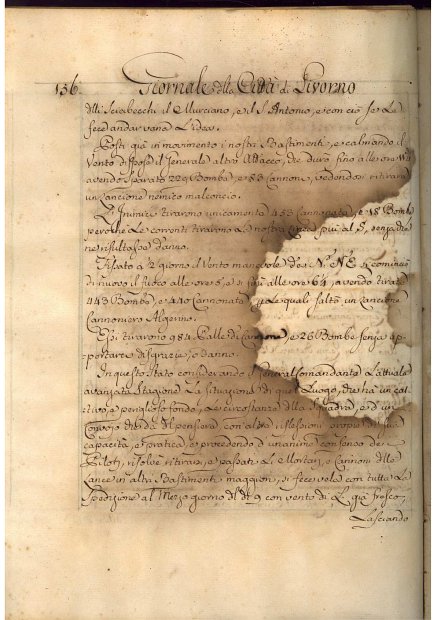 136. Giornale della Città di Livorno
delli Sciabecchi il Murciano, e il S. Antonio, e con ciò se le
fece andar vana l'idea.
Posti già in movimento i nostri Bastimenti, e calmando il
Vento dispose il Generale altro Attacco, che durò fino alle ore
avendo sparato 229 Bombe, e 83 Cannone, vedendosi ritirare
un Lancione nemico malconcio.
Gl'Inimici tirarono unicamente 453 Cannonate, e 18 Bombe
perche le correnti tirarono la nostra linea più al S, senza che
ne risultasse danno.
Fissato a 2 giorno il Vento mar del N. N. E. cominciò
di nuovo il fuoco alle ore 5, e alle ore 6¼, avendo tirato
443 Bombe, e 440 Cannonate, quali saltò un Lancione
Cannoniero Algerino.
Essi tirarono 984 Palle di Cannone, e 26 Bombe senza ap-
portare disgrazia, o danno.
In questo stato considerando il General Comandante l'attuale
avanzata Stagione la situazione di quel Luogo, che ha un cat-
tivo, e periglioso fondo, le circostanze della Squadra, e d'un
Convoglio con altre riflessioni proprie
capacità, e pratica, e precedendo l'unanime consenso dei
Piloti, risolvè ritirarsi, e passati li Mortari, e Cannoni delle
Lance in altri Bastimenti maggiori, si fece vela con tutta la
Spedizione al Mezzo giorno del dì 9 con vento di L. già fresco,
lasciando